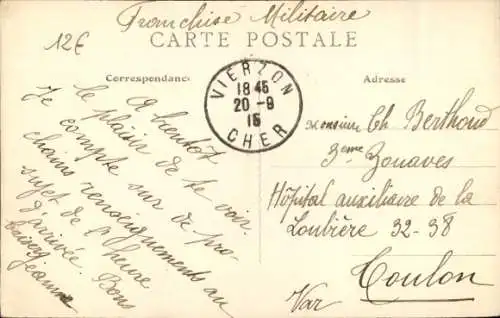 Franchise Militaire
12€
CARTE POSTALE
Correspondance
Adresse
VIERZON
18 45
20-9
15
CHER
A bientôt
le plaisir de te voir.
Je compte sur de pro-
chains renseignements au
sujet de l'heure
d'arrivée. Bons
baisers
Jeanne
Monsieur Ch Berthoud
3eme Zouaves
Hôpital auxiliaire de la
Loubière 32-38
Toulon
Var